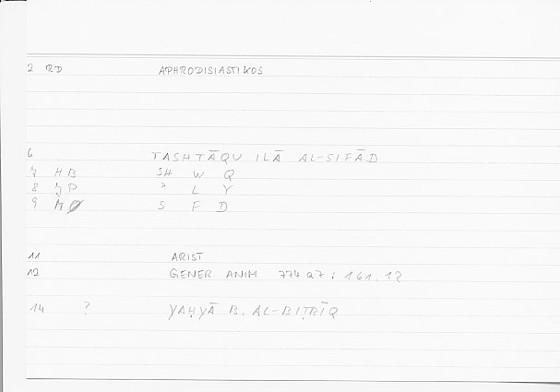 2 RD APHRODISIASTIKOS
6 TASHTĀQU ILĀ AL-SIFĀD
7 HB SH W Q
8 JP ʾ L Y
9 S F D
11 ARIST
12 GENER ANIM 774 a 7 : 161.12
14 ? YAḤYĀ B. AL-BIṬRĪQ